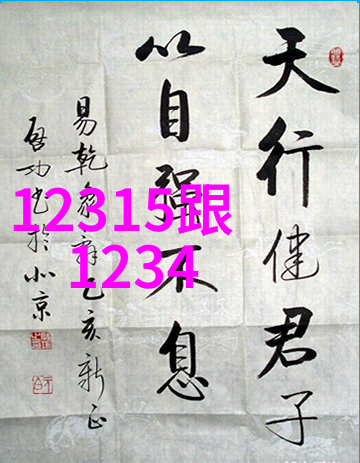 天行健君子
以自强不息
易乾象辞乙亥新正
启功书於北京
12315跟
1234